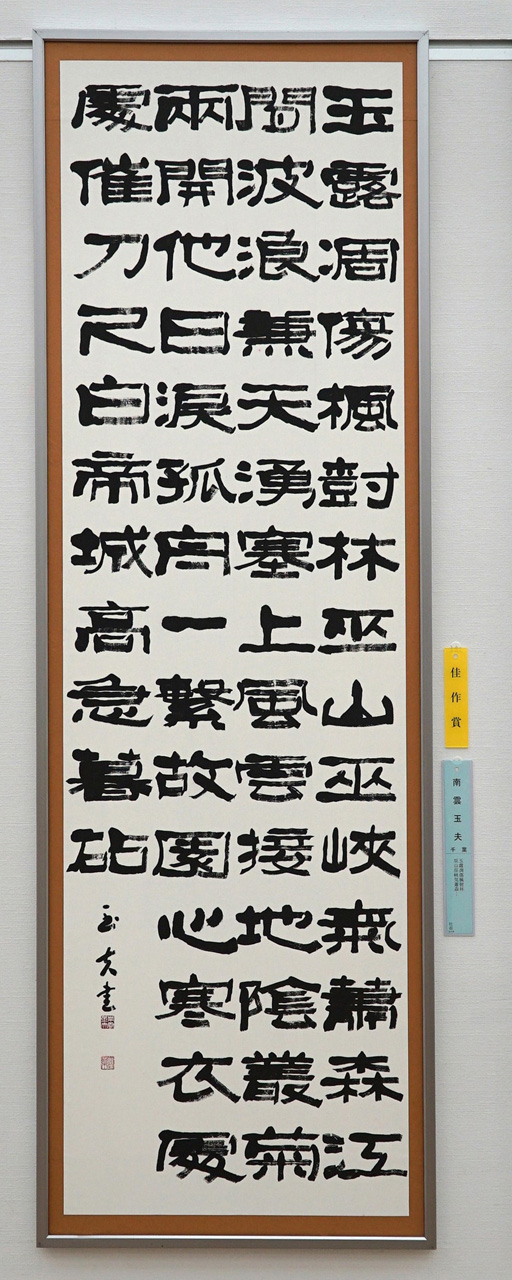 玉露凋傷楓尌林巫山巫峽氣蕭森江
間波浪兼天湧塞上風雲接地陰叢菊
兩開他日淚孤舟一繫故園心寒衣處
處催刀尺白帝城高急暮砧
玉夫書
佳作賞
南雲玉夫
千葉